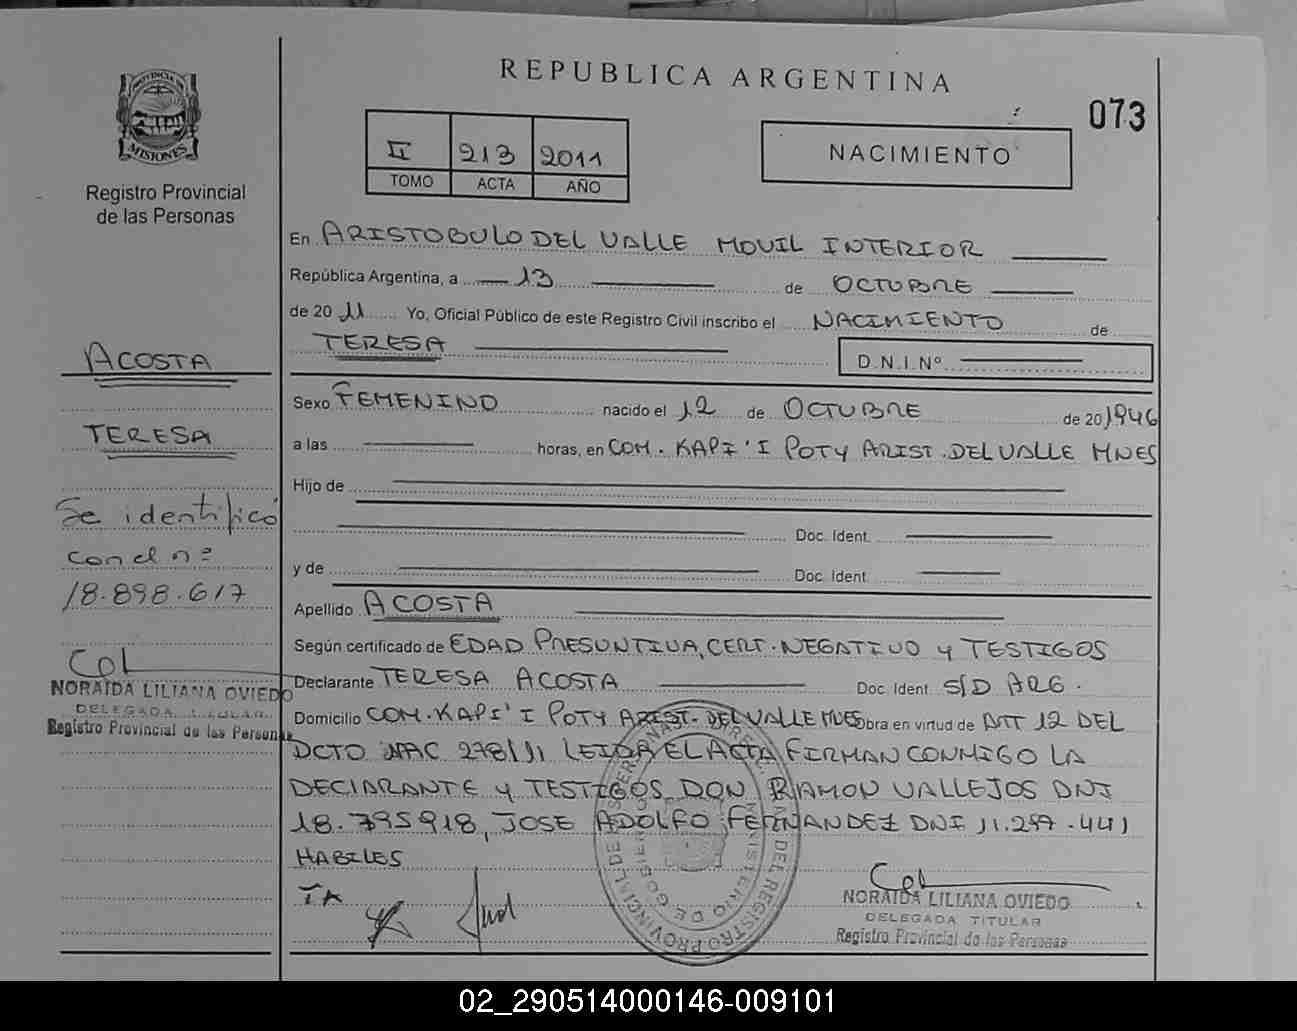 REPUBLICA ARGENTINA
073
PROVINCIA DE
MISIONES
Registro Provincial
de las Personas
II 213 2011
TOMO ACTA AÑO
NACIMIENTO
En ARISTOBULO DEL VALLE MOVIL INTERIOR
República Argentina, a 13 de OCTUBRE
de 2011 Yo, Oficial Público de este Registro Civil inscribo el NACIMIENTO de
TERESA
D.N.I.Nº
Sexo FEMENINO nacido el 12 de OCTUBRE de 20 1946
a las horas, en COM. KAPI'I POTY ARIST. DEL VALLE MNES
Hijo de
Doc. Ident.
y de Doc. Ident.
Apellido ACOSTA
Según certificado de EDAD PRESUNTIVA, CERT. NEGATIVO Y TESTIGOS
Declarante TERESA ACOSTA Doc. Ident. S/D ARG.
Domicilio COM. KAPI'I POTY ARIST. DEL VALLE MNES Obra en virtud de ART 12 DEL
DCTO NAC 278/11 LEIDA EL ACTA FIRMAN CONMIGO LA
DECLARANTE Y TESTIGOS DON RAMON VALLEJOS DNI
18.795918, JOSE ADOLFO FERNANDEZ DNI 11.297.441
HABILES
TA
NORAIDA LILIANA OVIEDO
DELEGADA TITULAR
Registro Provincial de las Personas
ACOSTA
TERESA
Se identificó
con el nº
18.898.617
NORAIDA LILIANA OVIEDO
DELEGADA TITULAR
Registro Provincial de las Personas
02_290514000146-009101